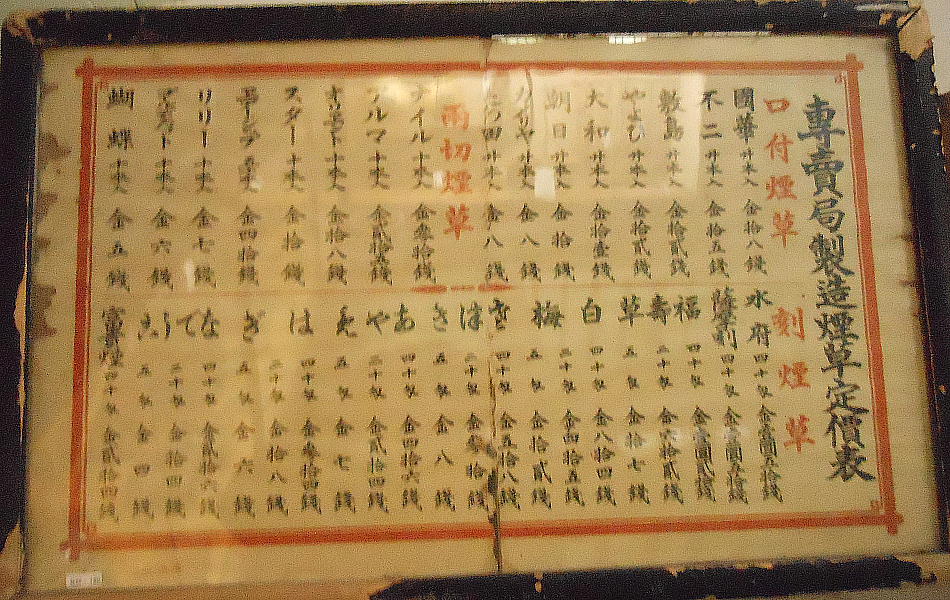 專賣局製造煙草定價表
口付煙草
國華 廿本入 金拾八錢
不二 廿本入 金拾五錢
敷島 廿本入 金拾貳錢
やまと 廿本入 金拾貳錢
大和 廿本入 金拾壹錢
朝日 廿本入 金拾錢
廿本入 金八錢
廿本入 金八錢
両切煙草
ナイル 十本入 金參拾錢
アルマ 十本入 金貳拾五錢
十本入 金拾八錢
スター 十本入 金拾錢
金四拾錢
リリー 十本入 金七錢
十本入 金六錢
蝴蝶 十本入 金五錢
刻煙草
水府 四十匁 金壹圓五拾錢
薩摩 四十匁 金壹圓五拾錢
四十匁 金壹圓貳拾錢
福壽草 四十匁 金六拾貳錢
五匁 金拾七錢
白梅 四十匁 金八拾四錢
二十匁 金四拾五錢
五匁 金拾貳錢
さつき 四十匁 金五拾八錢
二十匁 金參拾錢
五匁 金八錢
あやめ 四十匁 金四拾六錢
二十匁 金貳拾四錢
五匁 金七錢
はぎ 四十匁 金參拾四錢
二十匁 金拾八錢
五匁 金六錢
なでしこ 四十匁 金貳拾六錢
二十匁 金拾四錢
五匁 金四錢
四十匁 金貳拾四錢